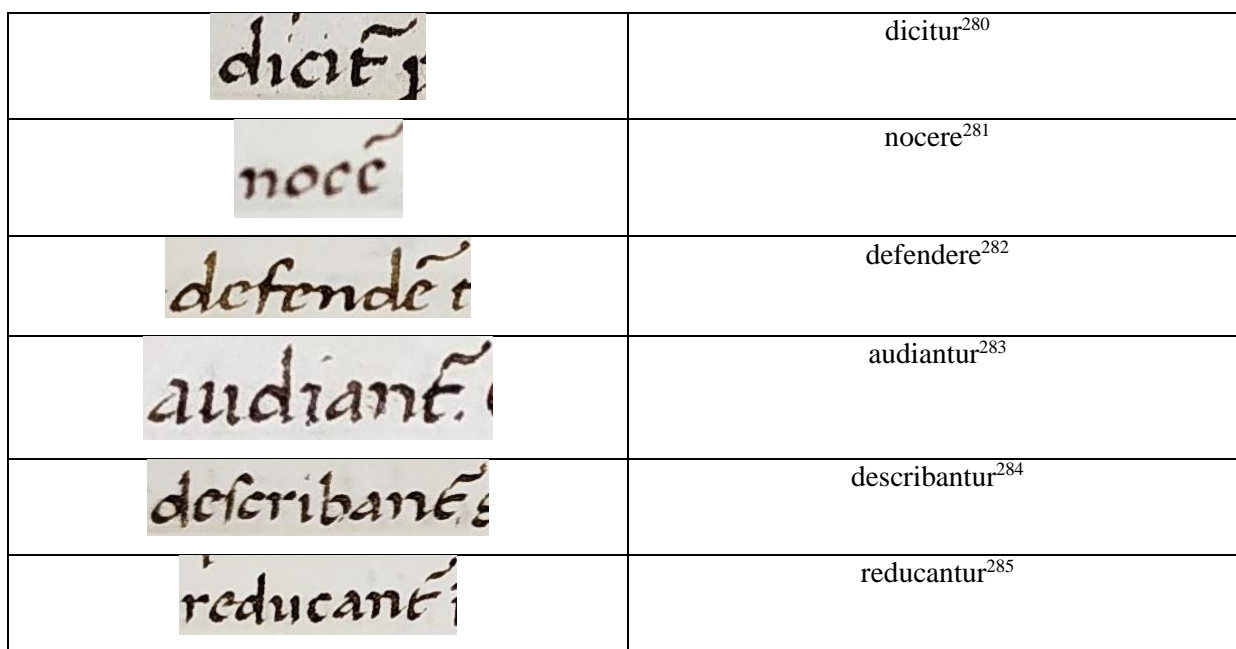 dicit̃ dicitur280
nocẽ nocere281
defendẽ t defendere282
audiant̃. audiantur283
deſcribant̃. describantur284
reducant̃ reducantur285